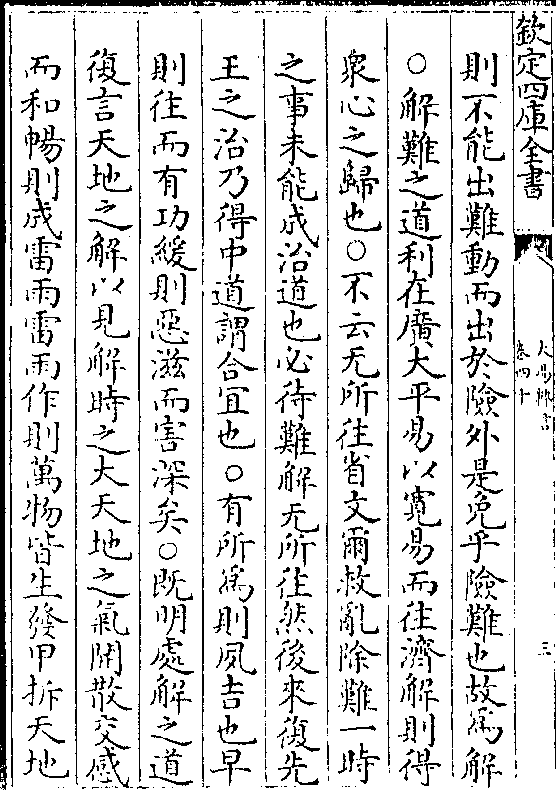 欽定四庫全書
大易擇言
卷四十
三
則不能出難動而出於險外是免乎險難也故爲解
○解難之道利在廣大平易以寬易而往濟解則得
衆心之歸也○不云无所往省文爾救亂除難一時
之事未能成治道也必待難解无所往然後來復先
王之治乃得中道謂合宜也○有所爲則夙吉也早
則往而有功緩則惡滋而害深矣○既明處解之道
復言天地之解以見解時之大天地之氣開散交感
而和暢則成雷雨雷雨作則萬物皆生發甲拆天地